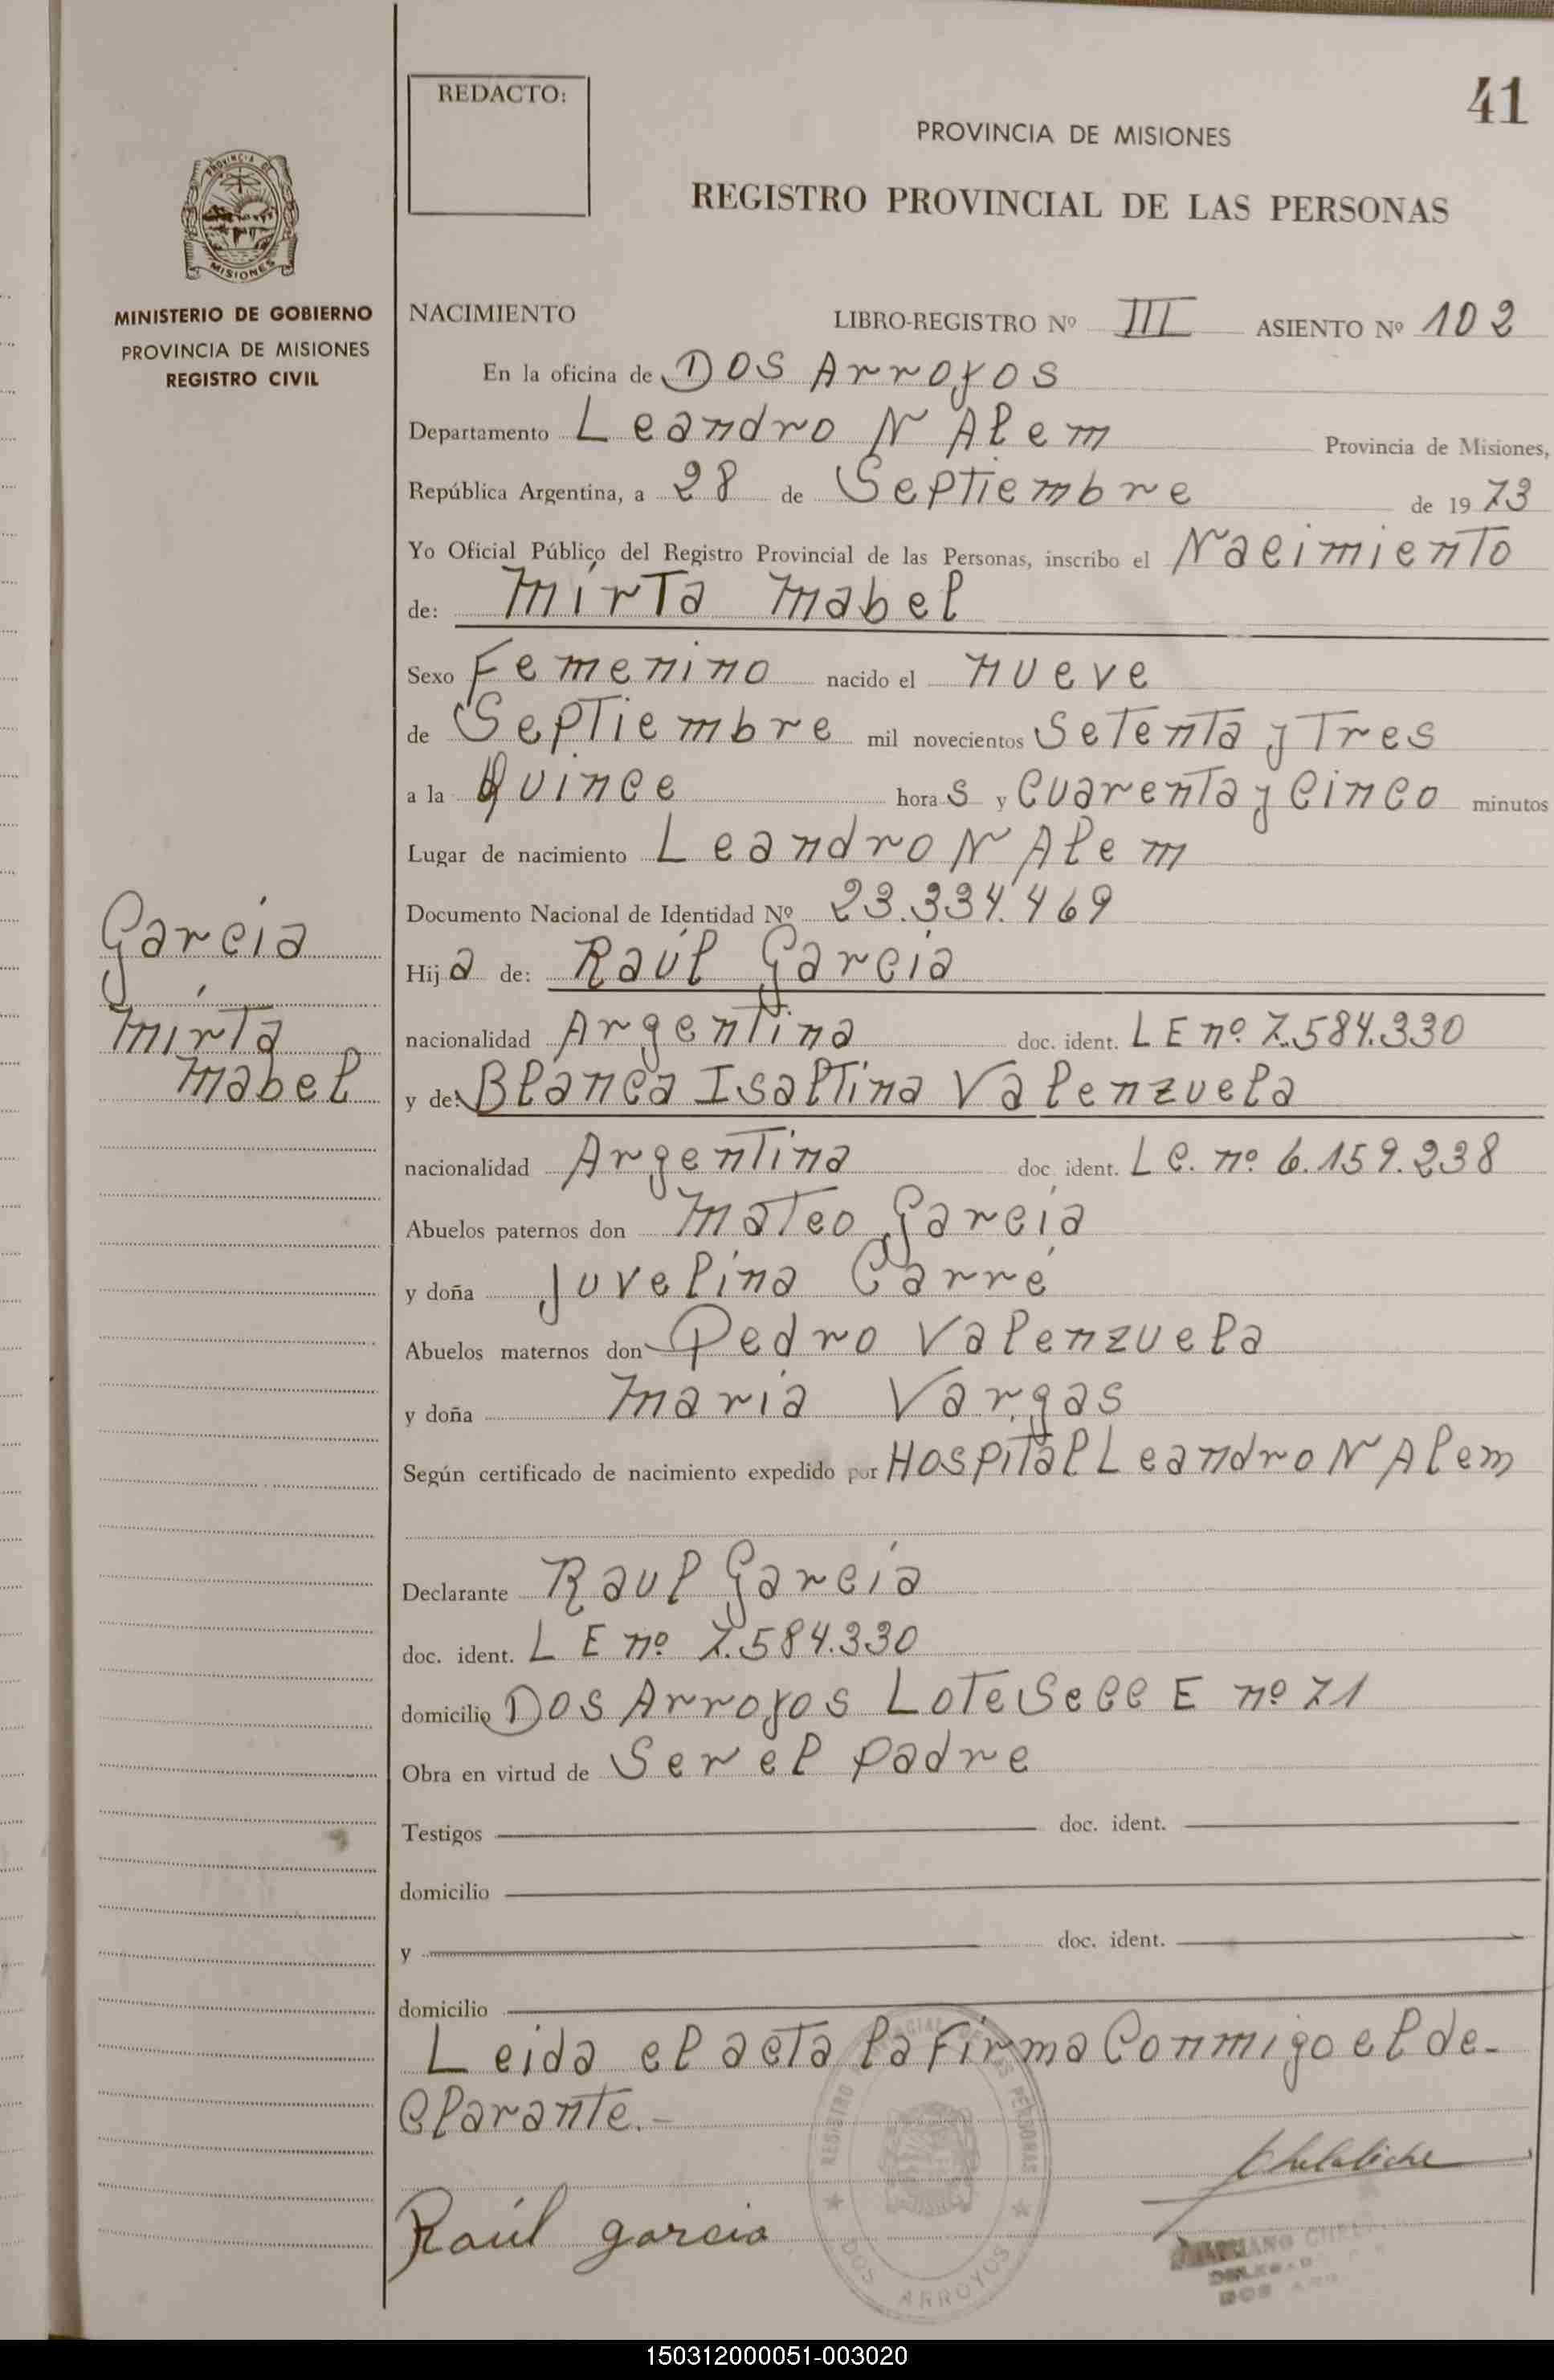 REDACTO:
41
PROVINCIA DE MISIONES
REGISTRO PROVINCIAL DE LAS PERSONAS
PROVINCIA DE
MISIONES
MINISTERIO DE GOBIERNO
PROVINCIA DE MISIONES
REGISTRO CIVIL
NACIMIENTO LIBRO-REGISTRO Nº III ASIENTO Nº 102
En la oficina de Dos Arroyos
Departamento Leandro N Alem Provincia de Misiones,
República Argentina, a 28 de Septiembre de 1973
Yo Oficial Público del Registro Provincial de las Personas, inscribo el Nacimiento
de: Mirta Mabel
Sexo Femenino nacido el nueve
de Septiembre mil novecientos Setenta y Tres
a la Quince hora s y Cuarenta y Cinco minutos
Lugar de nacimiento Leandro N Alem
Documento Nacional de Identidad Nº 23.334.469
García
Mirta
Mabel
Hij a de: Raúl García
nacionalidad Argentina doc. ident. L E nº 7.584.330
y de: Blanca Isaltina Valenzuela
nacionalidad Argentina doc. ident. L C. nº 6.159.238
Abuelos paternos don Mateo García
y doña Juvelina Carré
Abuelos maternos don Pedro Valenzuela
y doña María Vargas
Según certificado de nacimiento expedido por Hospital Leandro N Alem
Declarante Raul García
doc. ident. L E nº 7.584.330
domicilio Dos Arroyos Lote Secc E nº 71
Obra en virtud de Ser el padre
Testigos doc. ident.
domicilio
y doc. ident.
domicilio
Leida el acta la Firma Conmigo el de-
clarante.-
Raúl garcia
REGISTRO PROVINCIAL DE LAS PERSONAS
DOS ARROYOS
150312000051-003020